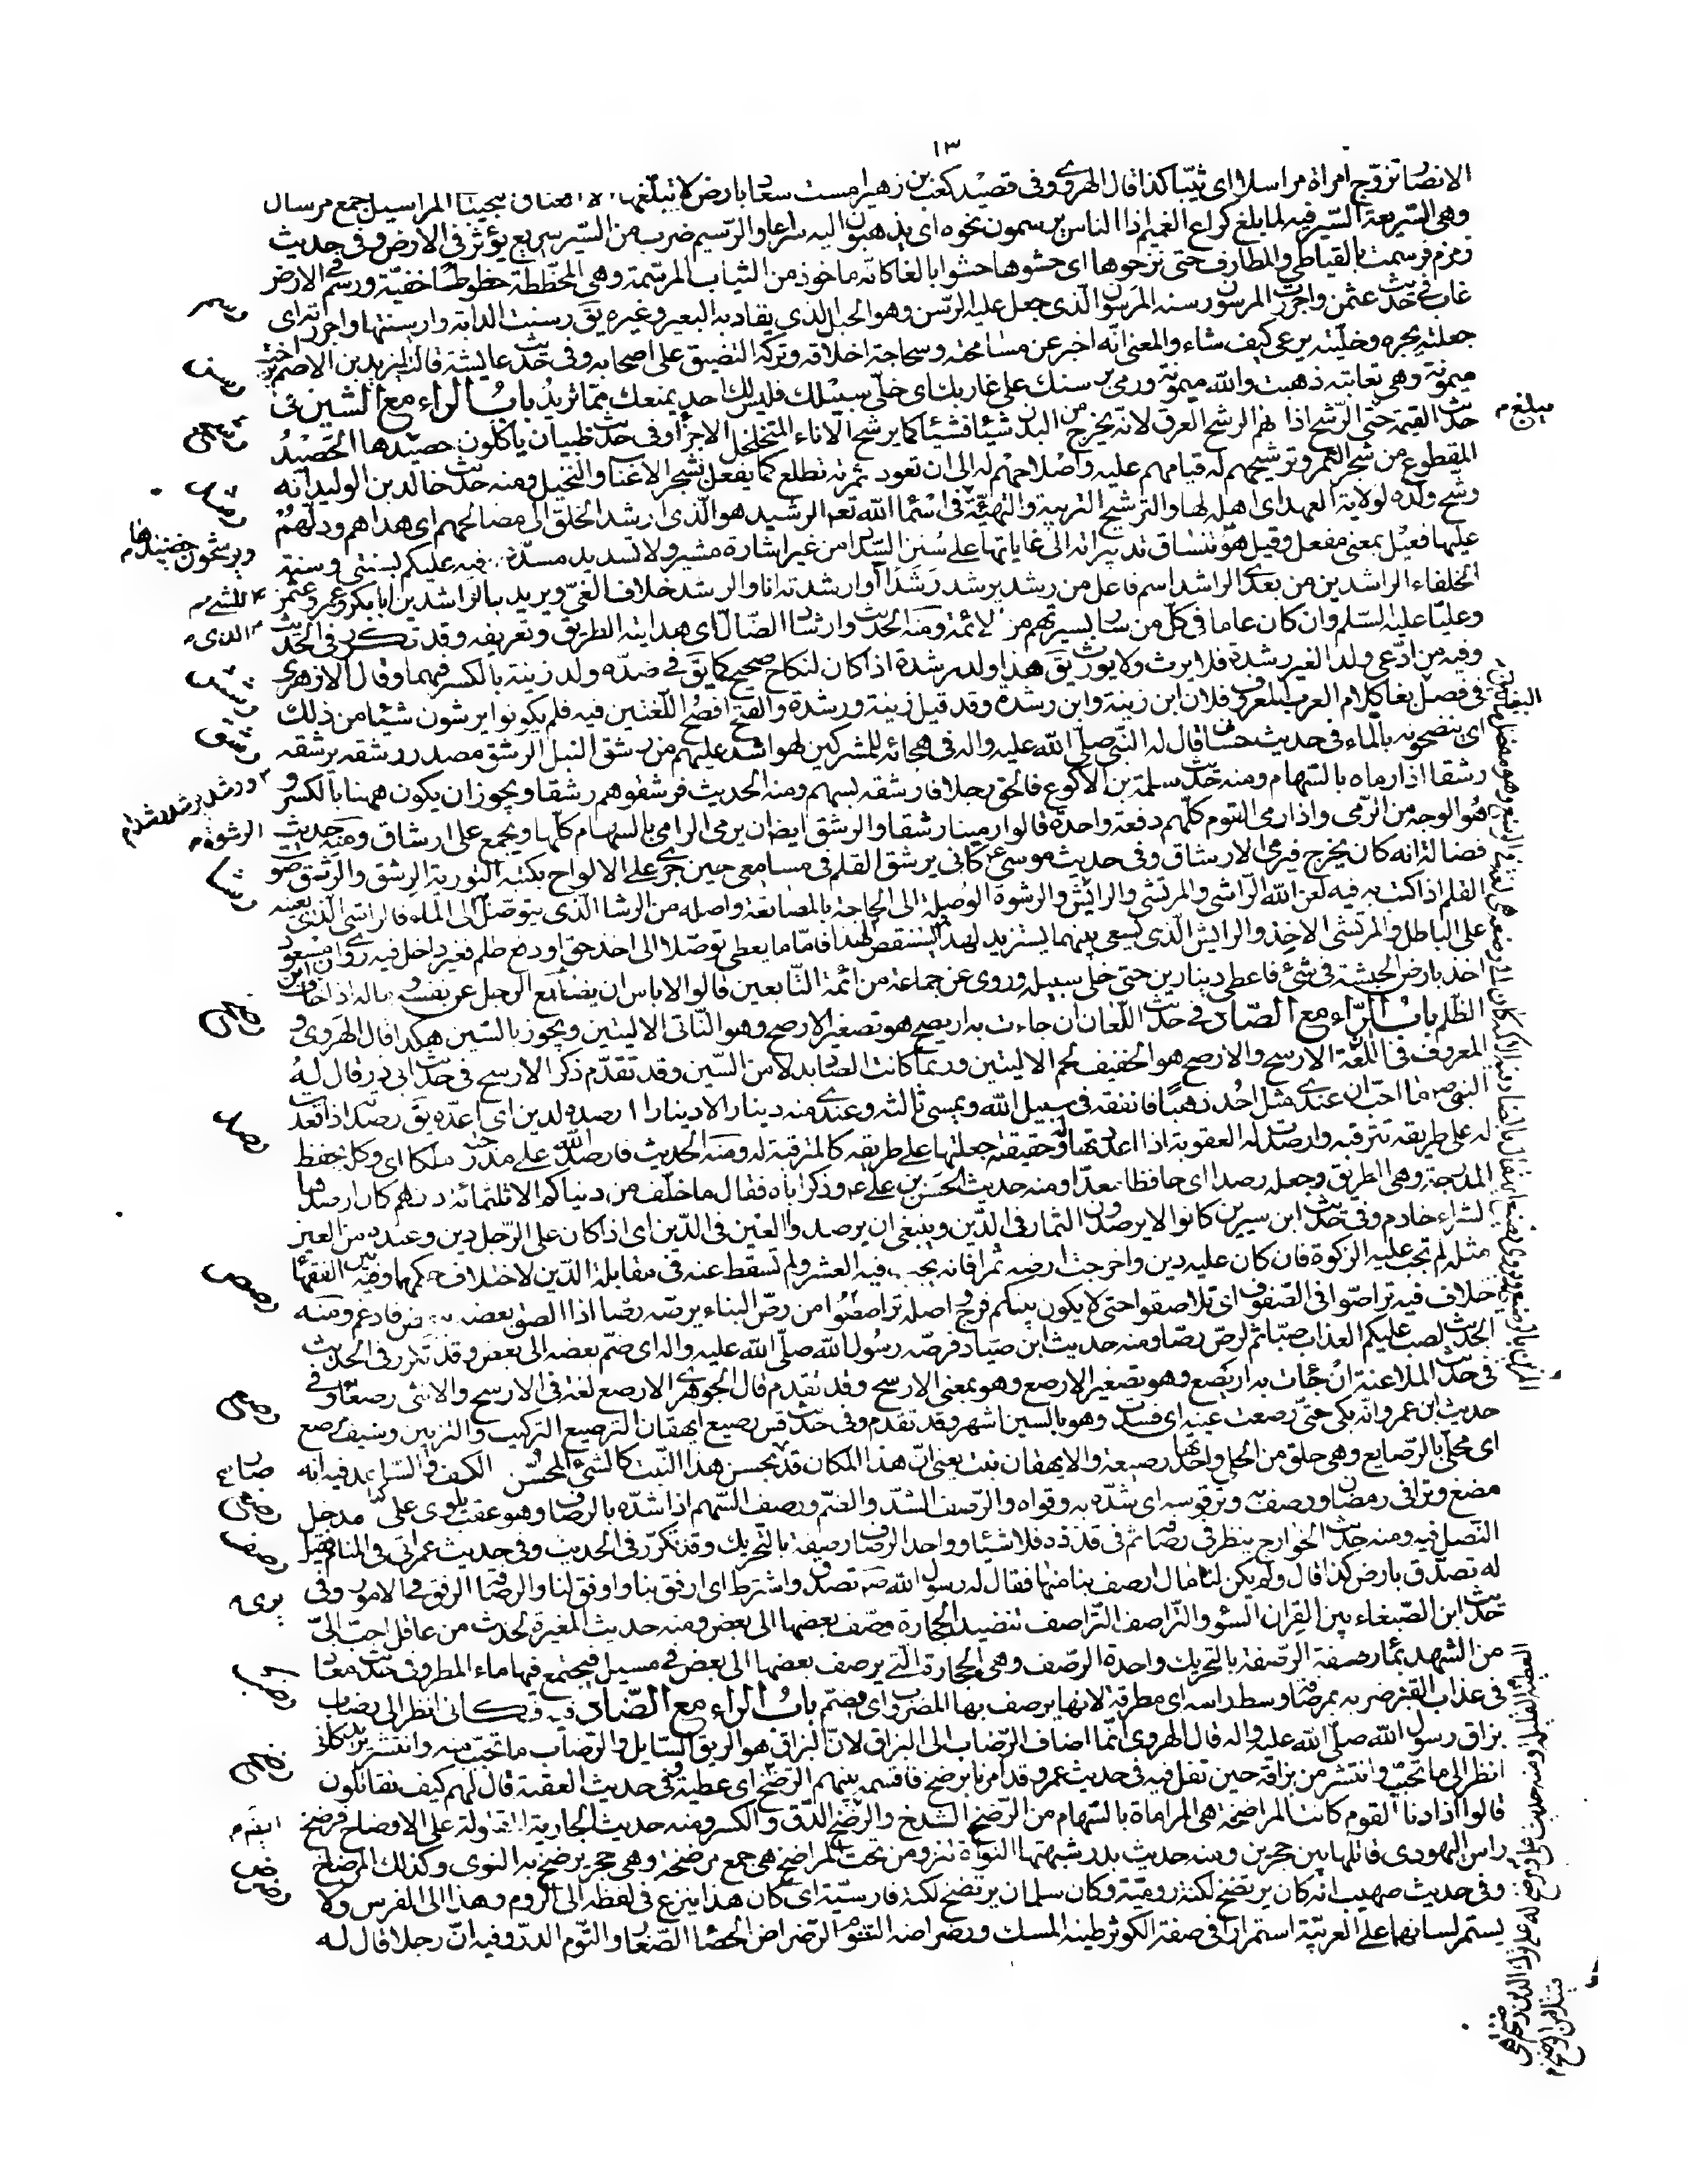 ١٣
الانصار تزوّج امراة مراسلا اى ثيّبا كذا قال الهروى وفى قصيد كعب بن زهير امست سعاد بارض لا تبلّغها المراسيل جمع مرسال
وهى السّريعة السّير فيه لما بلغ كراع الغميم اذا الناس يرسمون نحوه اى يذهبون اليه سراعا والرّسيم ضرب من السّير سريع يؤثر فى الارض وفى حديث
زمزم فرسمت بالقباطى والمطارف حتى نزحوها اى حشوها حشوا بالغا كانّه ماخوذ من الثياب المرسّمة وهى المخطّطة خطوطا خفيّة ورسم فى الارض
غاب فى حديث عثمن واجررت المرسون رسنه المرسون الّذى جعل عليه الرّسن وهو الحبل الذى يقاد به البعير وغيره يق رسنت الدابة وارسنتها واجررته اى
جعلته يجره وخلّيته يرعى كيف شاء والمعنى انّه اخبر عن مسامحته وسجاحة اخلاقه وتركه التضييق على اصحابه وفى حديث عايشة قالت ليزيد بن الاصم ابن اخت
ميمونة وهى تعاتبه ذهبت والله ميمونة ورمى برسنك على غاربك اى خلّى سبيلك فليس لك احد يمنعك ممّا تريد باب الراء مع الشين فى
حديث القيمة حتى الرّشح اذانهم الرشح العرق لانه يخرج من البدن شيئا فشيئا كما يرشح الاناء المتخلخل الاجزاء وفى حديث ظبيان ياكلون حصيدها الحصيد
المقطوع من شجر الثمر وترشيحهم له قيامهم عليه واصلاحهم له الى ان تعود ثمرته تطلع كما يفعل بشجر الاعناب والنخيل ومنه حديث خالد بن الوليد انه
رشح ولده لولاية العهد اى اهله لها والترشيح التربية والتهيئة فى اسماء الله تعه الرشيد هو الّذى ارشد الخلق الى مصالحهم اى هداهم ودلّهم
عليها فعيل بمعنى مفعل وقيل هو الذى تنساق تدبيراته الى غاياتها على سنن السّداد من غير اشارة مشير ولا تسديد مسدّد وفيه عليكم بسنتى وسنة
الخلفاء الراشدين من بعدى الراشد اسم فاعل من رشد يرشد رشدا وارشدته انا والرشد خلاف الغىّ ويريد بالراشدين ابا بكر وعمر وعثمن
وعليّا عليه السّلم وان كان عاما فى كلّ من سار بسيرتهم من الائمة ومنه الحديث وارشاد الضّالّ اى هدايته الطريق وتعريفه وقد تكرر فى الحديث
وفيه من ادّعى ولدا لغير رشدة فلا يرث ولا يورث يق هذا ولد رشدة اذا كان لنكاح صحيح كما يق فى ضدّه ولد زنية بالكسر فيهما وقال الازهرى
فى فصل بغا كلام العرب المعروف فلان ابن زنية وابن رشدة وقد قيل زنية ورشدة والفتح افصح اللّغتين فيه فلم يكونوا يرشون شيئا من ذلك
اى ينضحونه بالماء فى حديث حسّان قال له النّبى صلّى الله عليه واله فى هجائه للمشركين لهو اشد عليهم من رشق النبل الرشق مصدر رشقه يرشقه
رشقا اذا رماه بالسّهام ومنه حديث سلمة بن الاكوع فالحق رجلا فارشقه بسهم ومنه الحديث فرشقوهم رشقا ويجوز ان يكون ههنا بالكسر
وهو الوجه من الرّمى واذا رمى القوم كلّهم دفعة واحدة قالوا رمينا رشقا والرشق ايضا ان يرمى الرامى بالسهام كلّها ويجمع على ارشاق ومنه حديث
فضالة انه كان يخرج فيرمى الارشاق وفى حديث موسى ع كانى برشق القلم فى مسامعى حين جرى على الالواح بكتبه التورية الرشق والرشق صوت
القلم اذا كتب به فيه لعن الله الرّاشى والمرتشى والرايش والرشوة الوصلة الى الحاجة بالمصانعة واصله من الرشا الّذى يتوصّل الى الماء فالراشى الّذى يعينه
على الباطل والمرتشى الاخذ والرايش الّذى يسعى بينهما يستزيد لهذا ويستنقص لهذا فامّا ما يعطى توصّلا الى اخذ حق او دفع ظلم فغير داخل فيه روى ان ابن مسعود
اخذ بارض الحبشة فى شئ فاعطى دينارين حتى خلّى سبيله وروى عن جماعة من ائمة التّابعين قالوا لا باس ان يصانع الرجل عن نفسه وماله اذا خاف
الظّلم باب الرّاء مع الصّاد فى حديث اللّعان ان جاءت به اريصح هو تصغير الارصح وهو النّاتى الاليتين ويجوز بالسّين هكذا قال الهروى و
المعروف فى اللّغة الارسح والارصح هو الخفيف لحم الاليتين وربما كانت الصّاد بدلا من السّين وقد تقدّم ذكر الارسح فى حديث ابى ذر قال له
النبى صه ما احبّ ان عندى مثل احد ذهبا فانفقه فى سبيل الله ويمسى ثالثه وعندى منه دينار الا دينارا ارصده لدين اى اعدّه يق رصدته اذا قعدت
له على طريقه تترقبه وارصدت له العقوبة اذا اعددتها له وحقيقته جعلتها على طريقه كالمترقبة له ومنه الحديث فارصد الله على مدرجته ملكا اى وكله بحفظ
المدرجة وهى الطريق وجعله رصدا اى حافظا معدّا ومنه حديث الحسن بن على ع وذكر اباه فقال ما خلّف من دنياكم الا ثلثمائة درهم كان ارصدها
لشراء خادم وفى حديث ابن سيرين كانوا لا يرصدون الثمار فى الدّين وينبغى ان يرصد والعين فى الدّين اى اذا كان على الرّجل دين وعنده من العين
مثله لم تجب عليه الزكوة فان كان عليه دين واخرجت ارضه ثمرا فانه يجب فيه العشر ولم تسقط عنه فى مقابلة الدّين لاختلاف حكمهما وفيه بين الفقهاء
خلاف فيه تراصّوا فى الصّفوف اى تلاصقوا حتى لا يكون بينكم فرج واصله تراصصوا من رصّ البناء يرصّه رصّا اذا الصق بعضه ببعض فادغم ومنه
الحديث لصب عليكم العذاب صبّا ثم لرصّ رصّا ومنه حديث ابن صيّاد فرصّه رسول الله صلّى الله عليه واله اى ضمّ بعضه الى بعض وقد تكرر فى الحديث
فى حديث الملاعنة ان جات به اريصع وهو تصغير الارصع وهو بمعنى الارسح وقد تقدم قال الجوهرى الارصع لغة فى الارسح والانثى رصعاء وفى
حديث ابن عمر وانّه بكى حتّى رصعت عينه اى فسدت وهو بالسين اشهر وقد تقدم وفى حديث قس رصيع ايهقان الترصيع التركيب والتزيين وسيف مرصع
اى محلّى بالرّصايع وهى حلق من الحلى واحدتها رصيعة والايهقان نبت يعنى انّ هذا المكان قد تحسن بهذا النّبت كالشئ المحسّن الكف والسّاعد فيه انه
مضغ وترا فى رمضان ورصف به وتر قوسه اى شدّه به وقواه والرّصف الشدّ والضمّ ورصف السّهم اذا شدّه بالرصاف وهو عقب يلوى على مدخل
النّصل فيه ومنه حديث الخوارج ينظر فى رصافه ثم فى قذذه فلا شيئا وواحد الرصاف رصفة بالتّحريك وقد تكرّر فى الحديث وفى حديث عمر اتى فى المنام فقيل
له تصدّق بارض كذا قال ولم يكن لنا مال ارصف بنا منها فقال له رسول الله صه تصدق واشترط اى ارفق بنا واوفق لنا والرصافة الرفق فى الامور وفى
حديث ابن الصّبغاء بين القران السّؤ والتّراصف التّراصف تنضيد الحجارة وصفّ بعضها الى بعض ومنه حديث المغيرة لحديث من عاقل احبّ الىّ
من الشهد بماء رصفة الرّصفة بالتحريك واحدة الرّصف وهى الحجارة الّتى يرصف بعضها الى بعض فى مسيل فيجتمع فيها ماء المطر وفى حديث معاذ
فى عذاب القبر ضربه بمرصافة وسط راسه اى مطرقة لانها يرصف بها المضروب اى يضم باب الراء مع الضّاد فيه فكانى انظر الى رضاب
بزاق رسول الله صلّى الله عليه واله قال الهروى انّما اضاف الرّضاب الى البزاق لانّ البزاق هو الريق السّايل والرّضاب ما تحبّب منه وانتشر يريد كانى
انظر الى ما تحبّب وانتشر من بزاقه حين تفل فيه فى حديث عمر وقد امرنا برضخ فاقسمه بينهم الرّضخ اى عطية وفى حديث العقبة قال لهم كيف تقاتلون
قالوا اذا دنا القوم كانت المراضخة هى المراماة بالسّهام من الرّضخ الشدخ والرضخ الدّق والكسر ومنه حديث الجارية المقتولة على الاوضاح فرضخ
راس اليهودى قاتلها بين حجرين ومنه حديث بدر شبهتها النواة تنزو من تحت المراضخ هى جمع مرضخة وهى حجر يرضخ به النوى وكذلك المرضاح
وفى حديث صهيب انه كان يرتضخ لكنة روميّة وكان سلمان يرتضخ لكنة فارسيّة اى كان هذا ينزع فى لفظه الى الروم وهذا الى الفرس ولا
يستمر لسانهما على العربيّة استمرارا فى صفة الكوثر طينه المسك ورضراضه التّوم الرّضراض الحصا الصّغار والتّوم الدرّ وفيه انّ رجلا قال له
رسم
رسن
رشح
رشد
ويرشحون خضيدها
رشش
رشق
رشا
رصح
رصد
رصص
رصع
رصف
رضب
رضخ
رضض